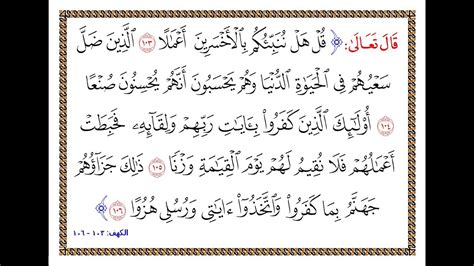 قَالَ تَعَالَىٰ: ﴿ قُلْ هَلْ نُنَبِّئُكُم بِٱلْأَخْسَرِينَ أَعْمَٰلًا ١٠٣ ٱلَّذِينَ ضَلَّ
سَعْيُهُمْ فِى ٱلْحَيَوٰةِ ٱلدُّنْيَا وَهُمْ يَحْسَبُونَ أَنَّهُمْ يُحْسِنُونَ صُنْعًا
١٠٤ أُو۟لَٰٓئِكَ ٱلَّذِينَ كَفَرُوا۟ بِـَٔايَٰتِ رَبِّهِمْ وَلِقَآئِهِۦ فَحَبِطَتْ
أَعْمَٰلُهُمْ فَلَا نُقِيمُ لَهُمْ يَوْمَ ٱلْقِيَٰمَةِ وَزْنًا ١٠٥ ذَٰلِكَ جَزَآؤُهُمْ
جَهَنَّمُ بِمَا كَفَرُوا۟ وَٱتَّخَذُوٓا۟ ءَايَٰتِى وَرُسُلِى هُزُوًا ١٠٦ ﴾
الكهف: ١٠٣ - ١٠٦